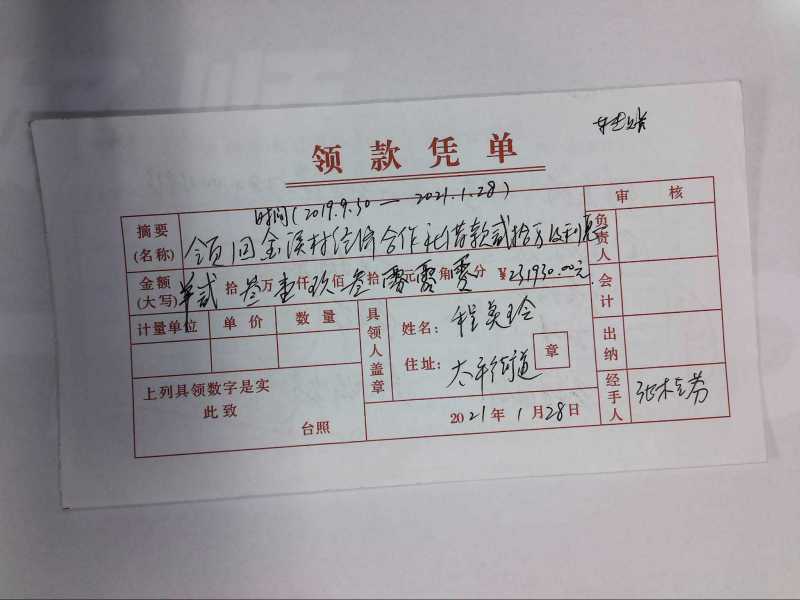 领款凭单
时间(2019.9.30 — 2021.1.28)
审 核
摘要(名称) 领回金溪村经济合作社借款贰拾万及利息
负责人
金额(大写) 贰拾叁万壹仟玖佰叁拾零元零角零分 ¥231930.00元
会计
计量单位 单价 数量
具领人盖章
姓名: 程
住址: 太平街道
章
出纳
上列具领数字是实
此致
台照
2021年1月28日
经手人